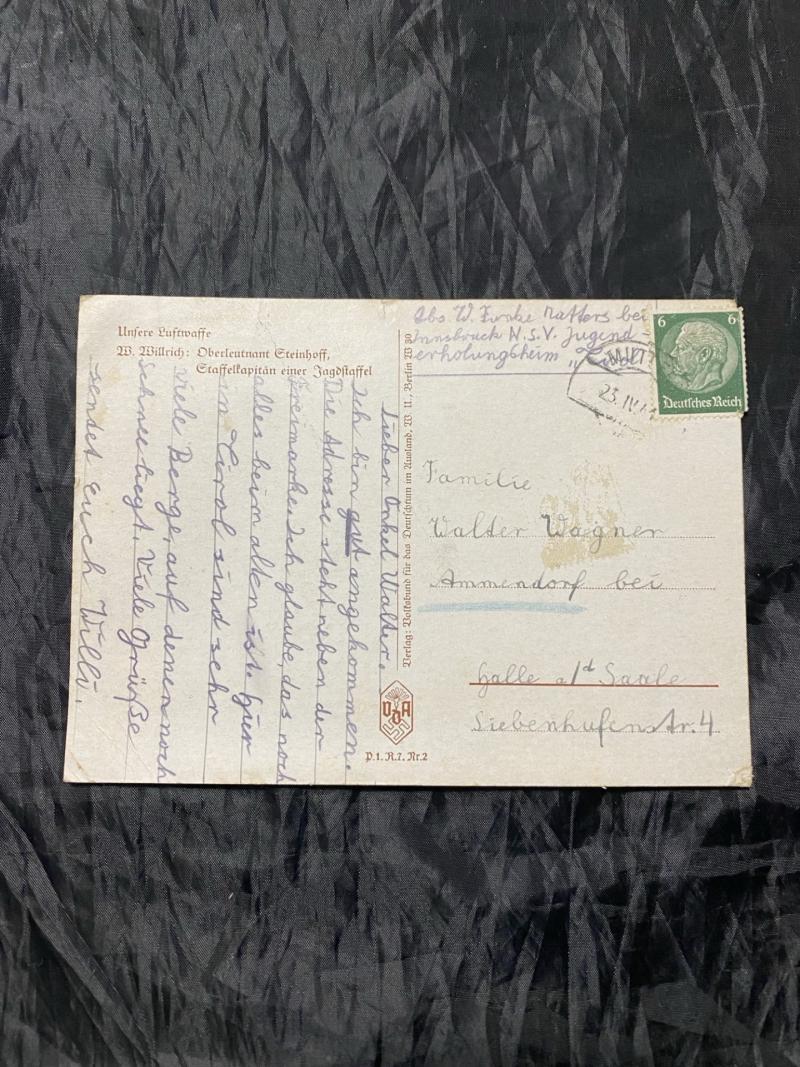 Unsere Luftwaffe
W. Willrich: Oberleutnant Steinhoff,
Staffelkapitän einer Jagdstaffel
Lieber Onkel Walter.
Ich bin gut angekommen.
Die Adresse steht neben der
Freimarke. Ich glaube, das noch
alles beim alten ist. Hier
in Tirol sind sehr
viele Berge, auf denen noch
Schnee liegt. Viele Grüße
sendet euch Willi.
Verlag: Volksbund für das Deutschtum im Ausland, W. U., Berlin W 30
VDA
P.1.R.7.Nr.2
Abs. W. Funke Natters bei
Innsbruck N.S.V. Jugend-
erholungsheim
6 6
Deutsches Reich
23. IV.
Familie
Walter Wagner
Ammendorf bei
Halle a/d Saale
Siebenhufenstr. 4